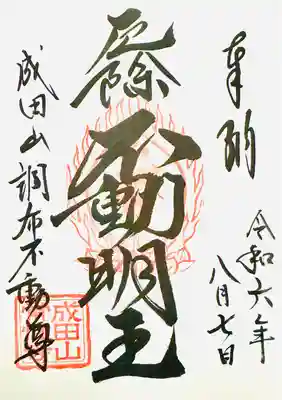 奉納
令和六年
八月七日
厄除
不動明王
成田山調布不動尊
成田山